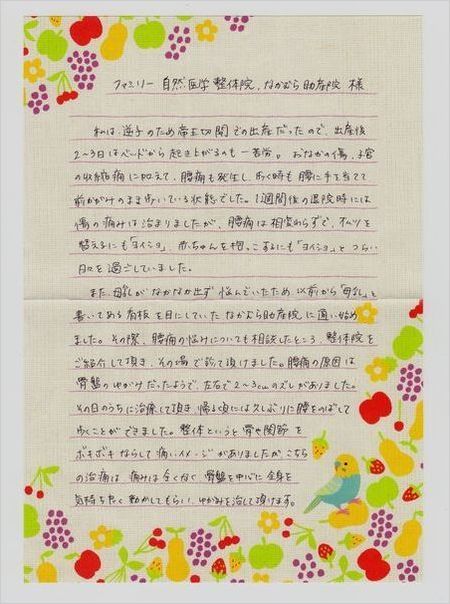 ファミリー自然医学整体院、なかむら助産院 様
私は逆子のため帝王切開での出産だったので、出産後
2〜3日はベッドから起き上がるのも一苦労。おなかの傷、子宮
の収縮痛に加えて、腰痛も発生し、歩く時も腰に手を当てて
前かがみのまま歩いている状態でした。1週間後の退院時には
傷の痛みは治まりましたが、腰痛は相変わらずで、オムツを
替えるにも「ヨイショ」、赤ちゃんを抱っこするにも「ヨイショ」と つらい
日々を過ごしていました。
また、母乳がなかなか出ず 悩んでいたため 以前から「母乳」と
書いてある看板を目にしていた なかむら助産院 に通い始め
ました。その際、腰痛の悩みについても相談したところ、整体院を
ご紹介して頂き、その場で診て頂けました。腰痛の原因は
骨盤のゆがみだったようで、左右で2〜3cmのズレがありました。
その日のうちに治療して頂き、帰る頃には久しぶりに腰をのばして
歩くことができました。整体というと骨や関節を
ボキボキならして痛いイメージがありましたが、こちら
の治療は、痛みは全くなく 骨盤を中心に全身を
気持ちよく動かしてもらい、ゆがみを治して頂けます。